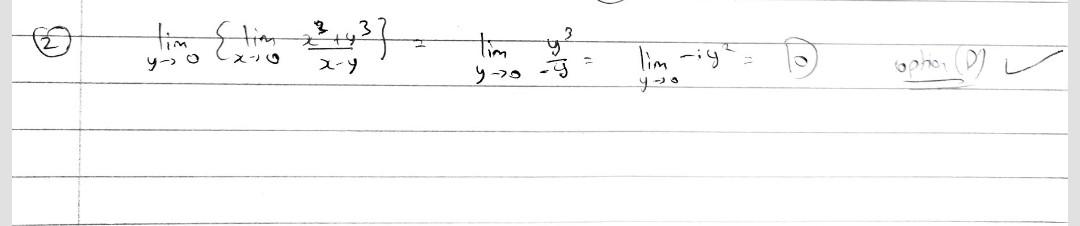 ② lim y→0 { lim x→0 x³+y³ / x-y } = lim y→0 y³ / -y = lim y→0 -iy² = 0 option (D) ✓